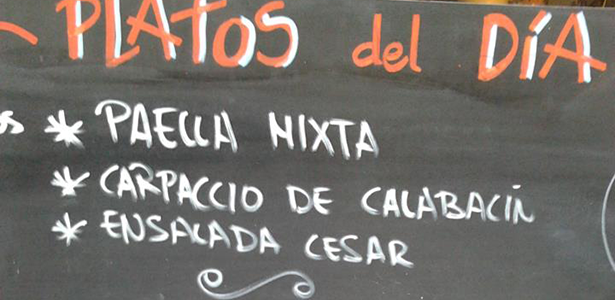 PLATOS del DÍA
* PAELLA MIXTA
* CARPACCIO DE CALABACÍN
* ENSALADA CESAR